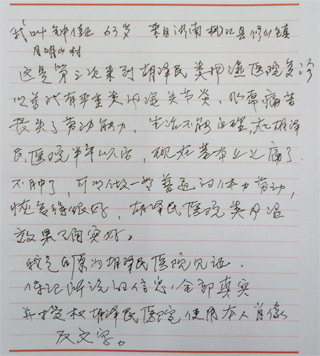 我叫钟佳 63岁 来自湖南桃江县修山镇
月明山村
这是第三次来到胡泽民类风湿医院复诊
以前我有严重类风湿关节炎,非常痛苦
丧失了劳动能力,生活不能自理,在胡泽
民医院半年以后,现在基本上不痛了
不肿了,可以做一些普通的体力劳动,
恢复得很好,胡泽民医院类风湿
效果确实好。
我是自愿为胡泽民医院见证.
保证所说的信息,全部真实
并授权胡泽民医院使用本人肖像
及文字。